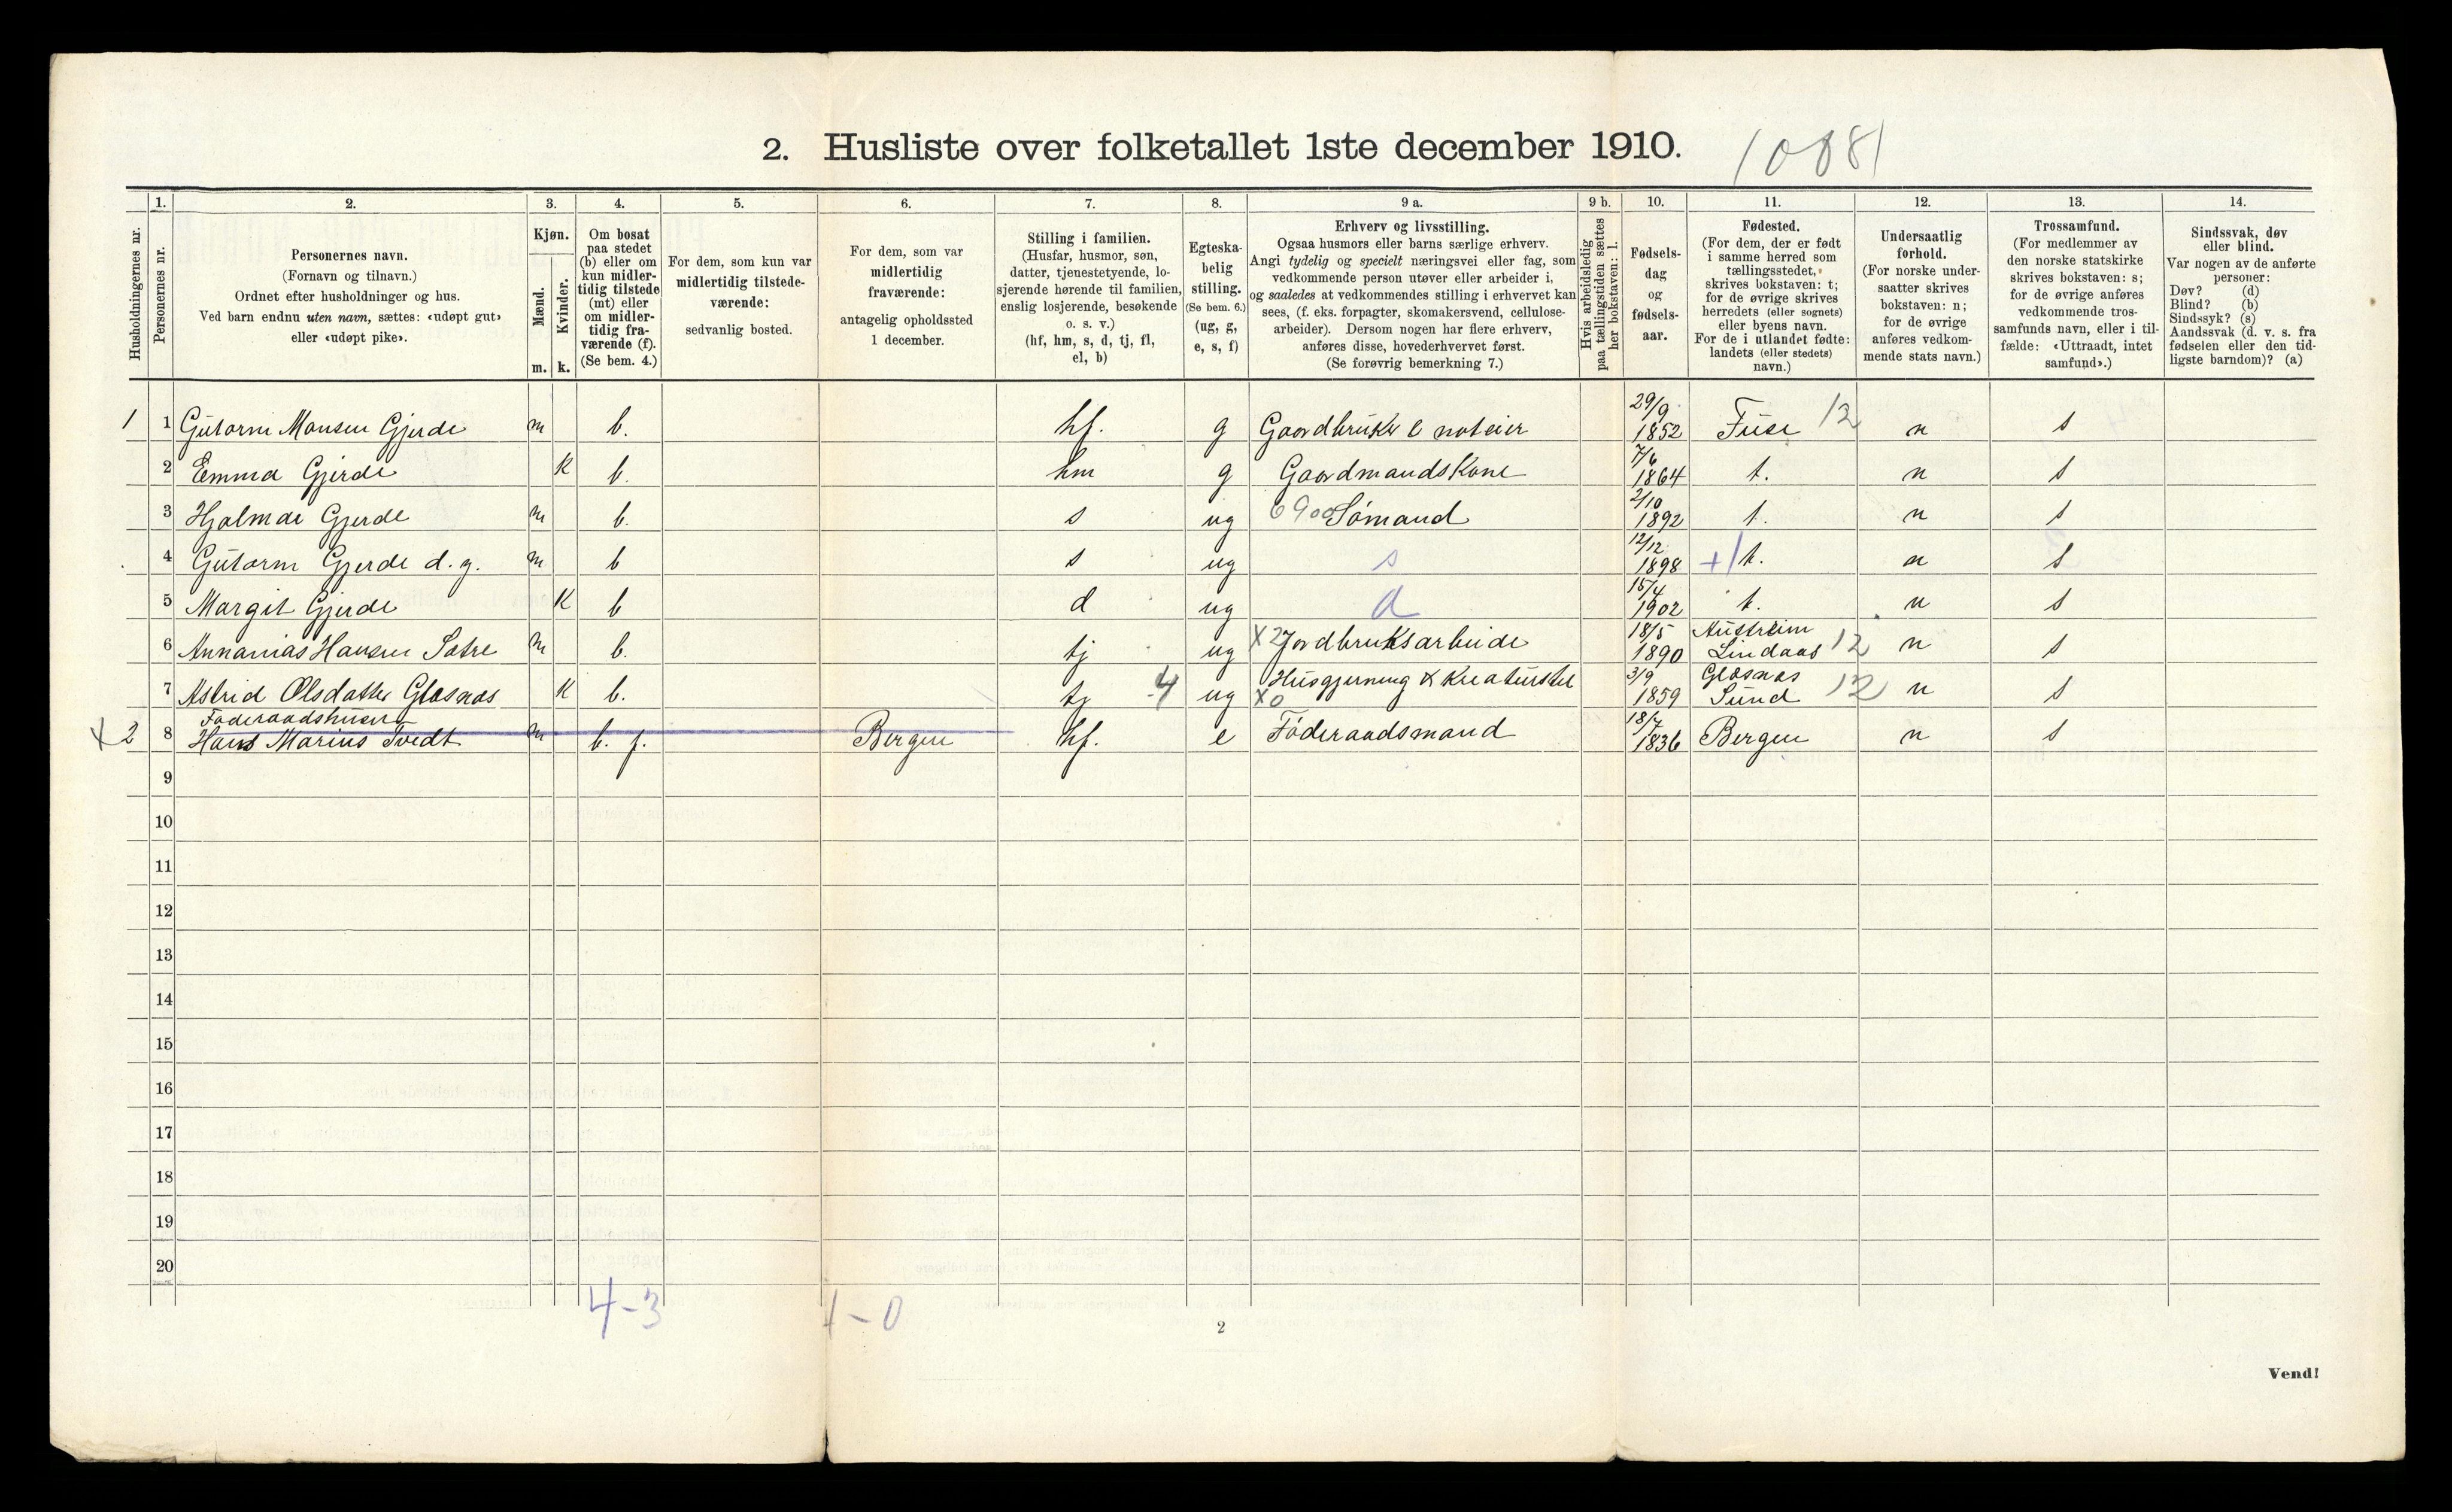 2. Husliste over folketallet 1ste december 1910.
10881
Husholdningernes nr.
1.
Personernes nr.
2.
Personernes navn.
(Fornavn og tilnavn.)
Ordnet efter husholdninger og hus.
Ved barn endnu uten navn, sættes: «udøpt gut»
eller «udøpt pike».
3.
Kjøn.
Mænd.
m.
Kvinder.
k.
4.
Om bosat
paa stedet
(b) eller om
kun midler-
tidig tilstede
(mt) eller
om midler-
tidig fra-
værende (f).
(Se bem. 4.)
5.
For dem, som kun var
midlertidig tilstede-
værende:
sedvanlig bosted.
6.
For dem, som var
midlertidig
fraværende:
antagelig opholdssted
1 december.
7.
Stilling i familien.
(Husfar, husmor, søn,
datter, tjenestetyende, lo-
sjerende hørende til familien,
enslig losjerende, besøkende
o. s. v.)
(hf, hm, s, d, tj, fl,
el, b)
8.
Egteska-
belig
stilling.
(Se bem. 6.)
(ug, g,
e, s, f)
9 a.
Erhverv og livsstilling.
Ogsaa husmors eller barns særlige erhverv.
Angi tydelig og specielt næringsvei eller fag, som
vedkommende person utøver eller arbeider i,
og saaledes at vedkommendes stilling i erhvervet kan
sees, (f. eks. forpagter, skomakersvend, cellulose-
arbeider). Dersom nogen har flere erhverv,
anføres disse, hovederhvervet først.
(Se forøvrig bemerkning 7.)
9 b.
Hvis arbeidsledig
paa tællingstiden sættes
her bokstaven: l.
10.
Fødsels-
dag
og
fødsels-
aar.
11.
Fødested.
(For dem, der er født
i samme herred som
tællingsstedet,
skrives bokstaven: t;
for de øvrige skrives
herredets (eller sognets)
eller byens navn.
For de i utlandet fødte:
landets (eller stedets)
navn.)
12.
Undersaatlig
forhold.
(For norske under-
saatter skrives
bokstaven: n;
for de øvrige
anføres vedkom-
mende stats navn.)
13.
Trossamfund.
(For medlemmer av
den norske statskirke
skrives bokstaven: s;
for de øvrige anføres
vedkommende tros-
samfunds navn, eller i til-
fælde: «Uttraadt, intet
samfund».)
14.
Sindssvak, døv
eller blind.
Var nogen av de anførte
personer:
Døv? (d)
Blind? (b)
Sindssyk? (s)
Aandssvak (d. v. s. fra
fødselen eller den tid-
ligste barndom)? (a)
1 1 Gutorm Monsen Gjerde m b. hf. g Gaardbruker & noteier 29/9 1852 Fuse 12 n s
2 Emma Gjerde k b. hm g Gaardmandskone 7/6 1864 t. n s
3 Hjalmar Gjerde m b. s ug 6900 Sømand 2/10 1892 t. n s
4 Gutorm Gjerde d. y. m b s ug s 12/12 1898 +1 t. n s
5 Margit Gjerde k b d ug d 15/4 1902 t. n s
6 Annanias Hansen Sætre m b. tj ug x2 Jordbruksarbeide 18/5 1890 Austreim Lindaas 12 n s
7 Astrid Olsdatter Glæsnæs k b. tj 4 ug x0 Husgjerning & Kreaturstel 3/9 1859 Glæsnæs Sund 12 n s
Føderaadshuset
x 2 8 Hans Marius Tvedt m b. f. Bergen hf. e Føderaadsmand 18/7 1836 Bergen n s
9
10
11
12
13
14
15
16
17
18
19
20
4-3
1-0
2
Vend!